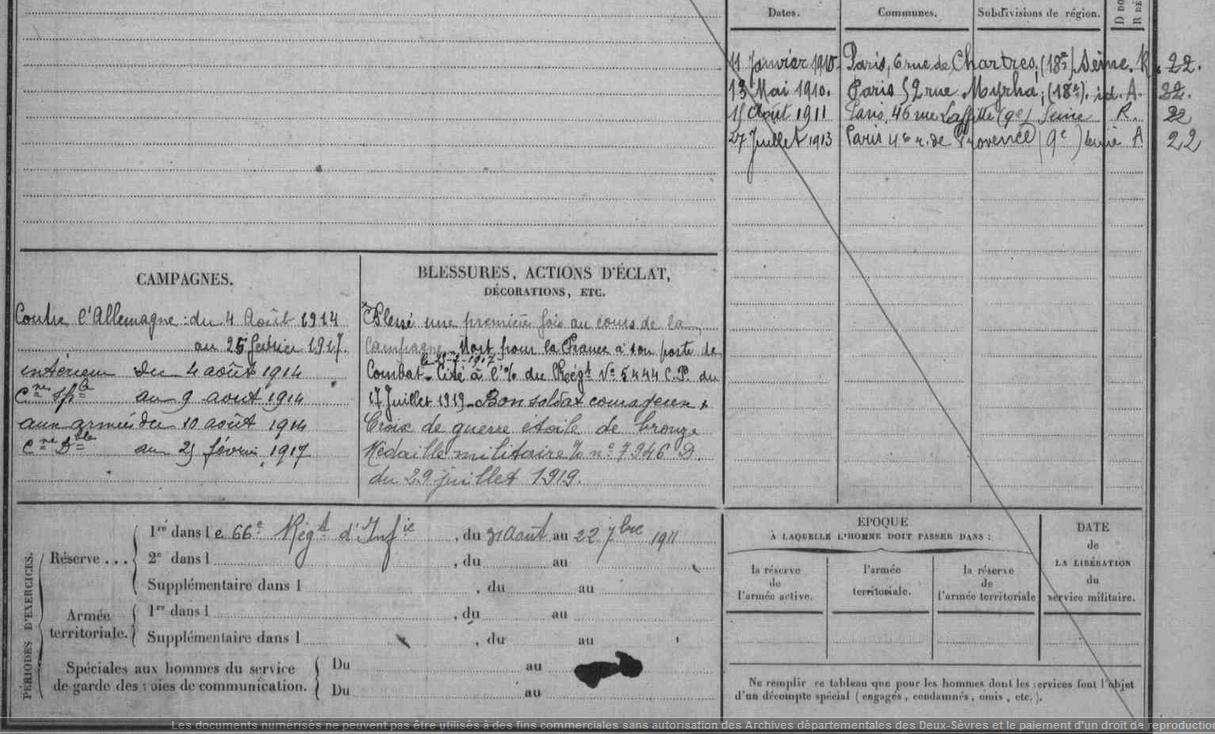 Dates. Communes. Subdivisions de région.
11 Janvier 1910 Paris, 6 rue de Chartres, (18e) Seine. R. 22.
13 Mai 1910. Paris 52 rue Myrha, (18e). id. A. 22.
Août 1911 Paris, 46 rue Laffitte (9e) Seine R. 22
27 Juillet 1913 Paris 46 r. de Provence (9e) Seine A 22
CAMPAGNES.
Contre l'Allemagne : du 4 Août 1914
au 25 février 1917.
intérieur du 4 août 1914
Cne Sple au 9 août 1914
aux armées du 10 août 1914
Cne Dble au 25 février 1917
BLESSURES, ACTIONS D'ÉCLAT,
DÉCORATIONS, ETC.
Blessé une première fois au cours de la
campagne. Mort pour la France à son poste de
le 25-2-1917
Combat - Cité à l'% du Régt No 5444 C.P. du
17 Juillet 1919 - Bon soldat courageux
Croix de guerre étoile de bronze
Médaille militaire % no 7946 D
du 29 juillet 1919.
PÉRIODES D'EXERCICES.
Réserve ...
1re dans le 66e Régt d'Infie , du 31 Août au 22 7bre 1911
2e dans l , du au
Supplémentaire dans l , du au
Armée
territoriale.
1re dans l , du au
Supplémentaire dans l , du au
Spéciales aux hommes du service
de garde des voies de communication.
Du au
Du au
EPOQUE
À LAQUELLE L'HOMME DOIT PASSER DANS :
la réserve
de
l'armée active.
l'armée
territoriale.
la réserve
de
l'armée territoriale
DATE
de
LA LIBÉRATION
du
service militaire.
Ne remplir ce tableau que pour les hommes dont les services font l'objet
d'un décompte spécial (engagés, condamnés, omis, etc.).
Les documents numérisés ne peuvent pas être utilisés à des fins commerciales sans autorisation des Archives départementales des Deux-Sèvres et le paiement d'un droit de reproduction